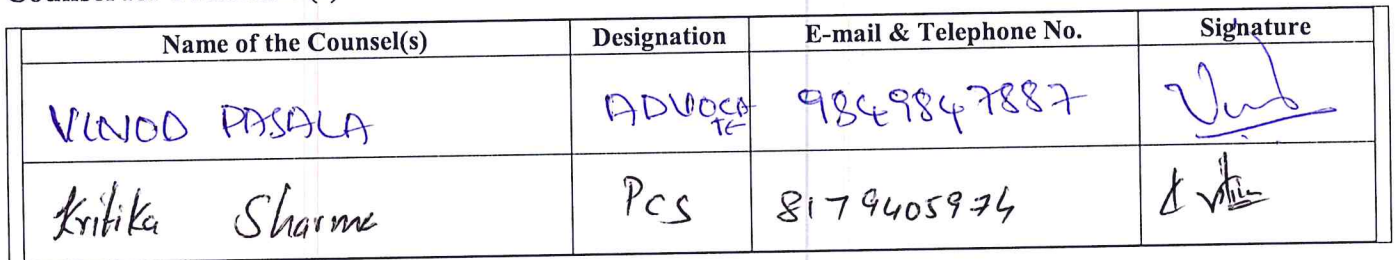 Name of the Counsel(s) Designation E-mail & Telephone No. Signature
VINOD PASALA ADVOCATE 9849847887
Kritika Sharma PCS 8179405974